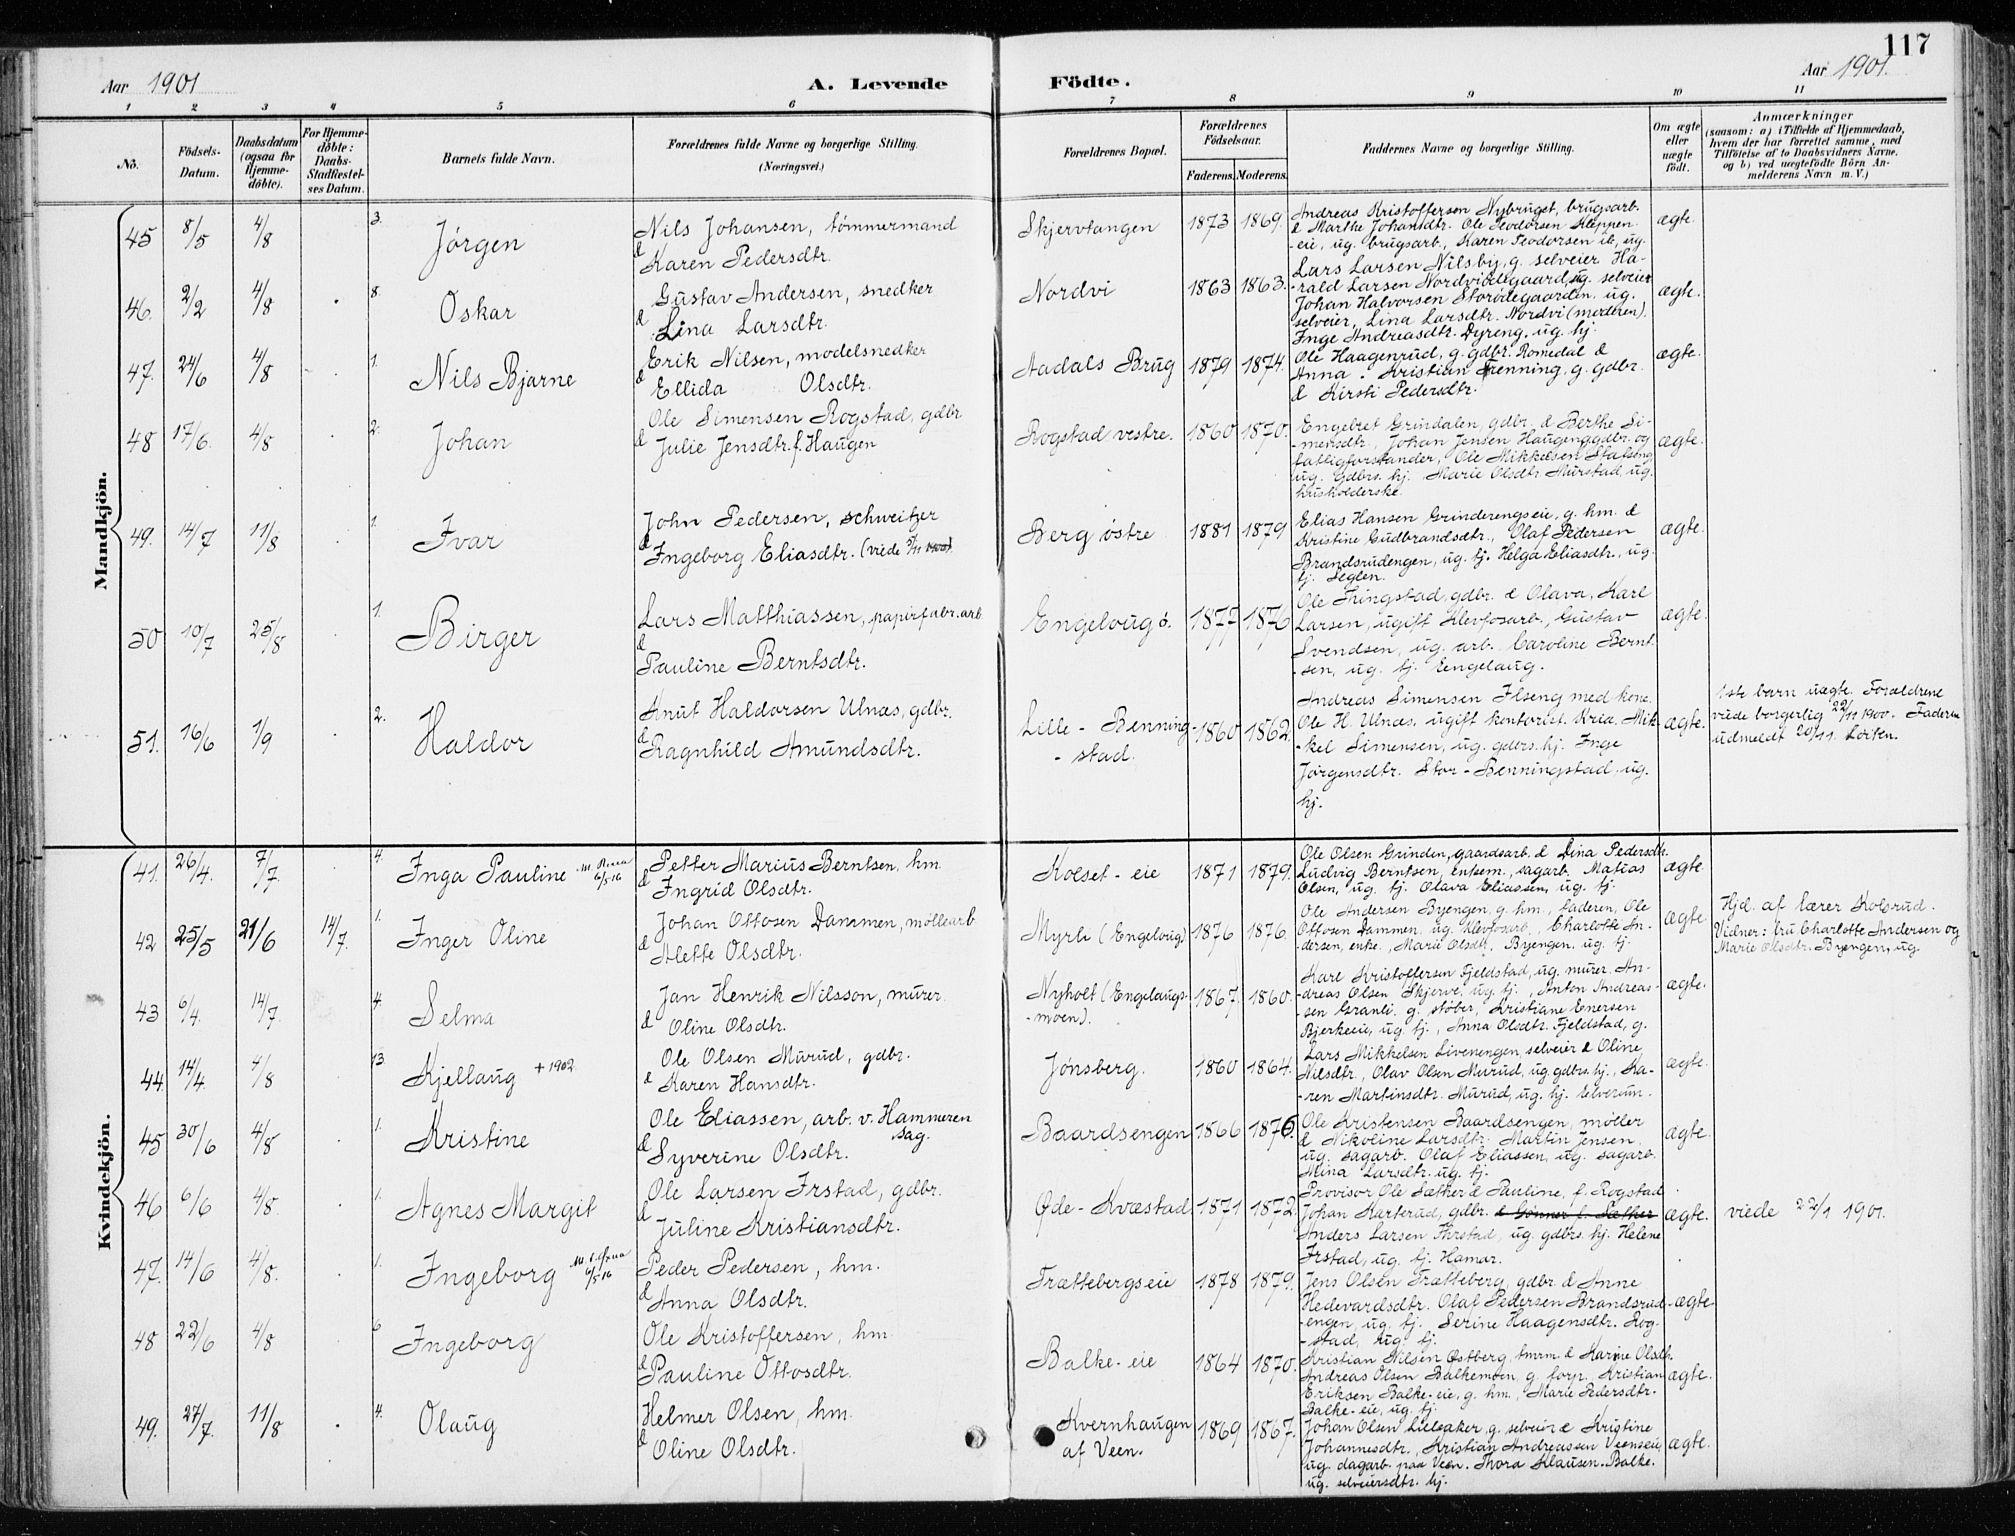 117
Aar 1901
A. Levende Födte.
Aar 1901.
1 2 3 4 5 6 7 8 9 10 11
No.
Födsels-Datum.
Daabsdatum (ogsaa for Hjemme-döbte).
For Hjemme-döbte: Daabs-Stadfæstelses Datum.
Barnets fulde Navn.
Forældrenes fulde Navne og borgerlige Stilling.
(Næringsvei.)
Forældrenes Bopæl.
Forældrenes Födselsaar.
Faderens. Moderens.
Faddernes Navne og borgerlige Stilling.
Om ægte eller uægte födt.
Anmærkninger
(saasom: a) i Tilfælde af Hjemmedaab, hvem der har forrettet samme, med Tilföielse af to Daabsvidners Navne, og b) ved uægtefödte Börn Anmelderens Navn m. V.)
Mandkjön.
45 8/5 4/8 3. Jørgen
Nils Johansen, tømmermand
& Karen Pedersdtr.
Skjervtangen 1873 1869.
Andreas Kristoffersen Nybruget, brugsarb.
& Marthe Johansdtr. Ole Teodorsen Kleppen-
-eie, ug. brugsarb., Karen Teodorsen ib, ug.
ægte.
46. 2/2 4/8 8. Oskar
Gustav Andersen, snedker
& Lina Larsdtr.
Nordvi 1863 1863.
Lars Larsen Nilsby, g. selveier Ha-
-rald Larsen Nordviødegaard, ug. selveier
Johan Halvorsen Storødegaarden, ug.
selveier, Lina Larsdtr. Nordvi (moderen),
Inge Andreasdtr. Dyreng, ug. hj.
ægte.
47. 24/6 4/8 1. Nils Bjarne
Erik Nilsen, modelsnedker
& Ellida Olsdtr.
Aadals Brug 1879 1874.
Ole Haagenrud, g. gdbr. Romedal &
Anna. Kristian Frenning, g. gdbr.
& Kirsti Pedersdtr.
ægte.
48 17/6. 4/8 2. Johan
Ole Simensen Rogstad, gdbr.
& Julie Jensdtr. f. Haugen
Rogstad vestre. 1860 1870.
Engebret Grindalen, gdbr. & Berthe Si-
-mensdtr., Johan Jensen Haugen, g. gdbr. og
fattigforstander, Ole Mikkelsen Stafseng,
ug. gdbrs. hj. Marie Olsdtr. Murstad, ug.
husholderske.
ægte.
49. 14/7 11/8 1. Ivar
John Pedersen, schweitzer
& Ingeborg Eliasdtr. (viede 9/11 1900).
Berg østre 1881 1879
Elias Hansen Grinderengseie, g. hm. &
Kristine Gudbrandsdtr., Olaf Pedersen
Brandsrudengen, ug. tj. Helga Eliasdtr., ug.
tj. Seglen.
ægte.
50 10/7 25/8 1. Birger
Lars Matthiassen, papirfabr.arb.
& Pauline Berntsdtr.
Engeloug ø. 1877 1876
Ole Tringstad, gdbr. & Olava, Karl
Larsen, ugift Klevfosarb., Gustav
Svendsen, ug. arb. Caroline Bernt-
-sen, ug. tj. Engelaug.
ægte.
51. 16/6 1/9 2. Haldor
Knut Haldorsen Ulnæs, gdbr.
& Ragnhild Amundsdtr.
Lille-Benning-
-stad. 1860 1862.
Andreas Simensen Ilseng med kone.
Ole H. Ulnæs, ugift kontorist Kria. Mik-
-kel Simensen, ug. gdbrs. hj. Inge
Jørgensdtr. Stor-Benningstad. ug.
hj.
ægte.
1ste barn uægte. Forældrene
viede borgerlig 22/11 1900. Faderen
udmeldt 20/11. Løiten.
Kvindekjön.
41. 26/4. 7/7. 4. Inga Pauline 6/5 16
Petter Marius Berntsen, hm.
& Ingrid Olsdtr.
Kolset-eie 1871 1879.
Ole Olsen Grinden, gaardsarb. & Dina Pedersdtr.
Ludvig Berntsen, enkem., sagarb. Matias
Olsen, ug. tj. Olava Eliassen, ug. tj.
ægte.
42 25/5 21/6 14/7. 1. Inger Oline
Johan Ottosen Dammen, møllearb.
& Alette Olsdtr.
Myrli (Engeloug) 1876 1876.
Ole Andersen Byengen, g. hm., faderen, Ole
Ottosen Dammen, ug. Klevfosarb., Charlotte An-
-dersen, enke., Marie Olsdtr. Byengen, ug. tj.
ægte
Hjd. af lærer Kolsrud.
Vidner: fru Charlotte Andersen og
Marie Olsdtr. Byengen, ug.
43 6/4. 14/7. 4. Selma
Jan Henrik Nilsson, murer.
& Oline Olsdtr.
Nyholt (Engelaugs-
-moen). 1867. 1860.
Karl Kristoffersen Fjeldstad, ug. murer. An-
-dreas Olsen Skjerve, ug. tj., Anton Andreas-
-sen Granli, g. støber, Kristiane Enersen
Bjerkeeie, ug. tj., Anna Olsdtr. Fjeldstad, g.
ægte.
44. 14/4 4/8 13. Kjellaug + 1902
Ole Olsen Murud, gdbr.
& Karen Hansdtr.
Jønsberg. 1860 1864.
Lars Mikkelsen Livenengen, selveier & Oline
Nilsdtr., Olav Olsen Murud, ug. gdbrs. hj., Ka-
-ren Martinsdtr. Murud, ug. hj. Elverum.
ægte.
45 30/6 4/8 1. Kristine
Ole Eliassen, arb. v. Hammeren
sag.
& Syverine Olsdtr.
Baardsengen 1866 1876.
Ole Kristensen Baardsengen, møller
& Nikoline Larsdtr. Martin Jensen,
ug. sagarb. Olaf Eliassen, ug. sagarb.
Mina Larsdtr. ug. tj.
ægte.
46 6/6 4/8. 1. Agnes Margit
Ole Larsen Irstad, gdbr.
& Juline Kristiansdtr.
Øde-Kvæstad 1871 1872.
Provisor Ole Sæther & Pauline, f. Rogstad
Johan Karterud, gdbr. & Gunner f. Sæther
Anders Larsen Ihrstad, ug. gdbrs. hj. Helene
Irstad, ug. tj. Hamar.
ægte.
viede 22/1 1901.
47. 14/6 4/8. 1. Ingeborg 6/5 16
Peder Pedersen, hm.
& Anna Olsdtr.
Trættebergseie 1878 1879.
Jens Olsen Trætteberg, gdbr. & Anne
Hedevardsdtr. Olaf Pedersen Brandsrud-
-engen, ug. tj. Serine Haagensdtr. Rog-
-stad, ug. tj.
ægte
48 22/6 4/8 6 Ingeborg
Ole Kristoffersen, hm.
& Pauline Ottosdtr.
Balke-eie 1864 1870.
Kristian Nilsen Østberg, tmrm. & Karine Olsdtr.
Andreas Olsen Balkemoen, g. forp. Kristian
Eriksen Balke-eie, g. hm., Marie Pedersdtr.
Balke-eie, ug. tj.
ægte.
49. 27/7. 11/8 4. Olaug
Helmer Olsen, hm.
& Oline Olsdtr.
Kvernhaugen
af Veen. 1869 1867.
Johan Olsen Lilleaker, g. selveier & Kristine
Johannesdtr., Kristian Andreassen Veenseie
ug. dagarb. paa Veen. Thora Klausen. Balke.
ug. selveiersdtr. hj.
ægte.